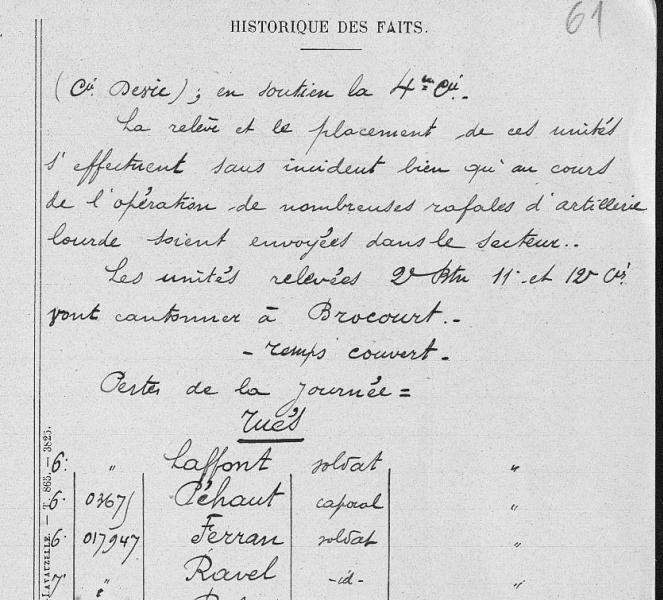 61
HISTORIQUE DES FAITS.
(Cie Desie) ; en soutien la 4me Cie.
La relève et le placement de ces unités
s'effectuent sans incident bien qu'au cours
de l'opération de nombreuses rafales d'artillerie
lourde soient envoyées dans le secteur..
Les unités relevées 2e Btn 11e et 12e Cie
vont cantonner à Brocourt.-
- Temps couvert -
Pertes de la journée =
Tués
6e " Laffont soldat "
6e Péhaut caporal "
6e 017947 Ferran soldat "
7e " Ravel -id- "
LAVAUZELLE. — T. 863. — 3825.